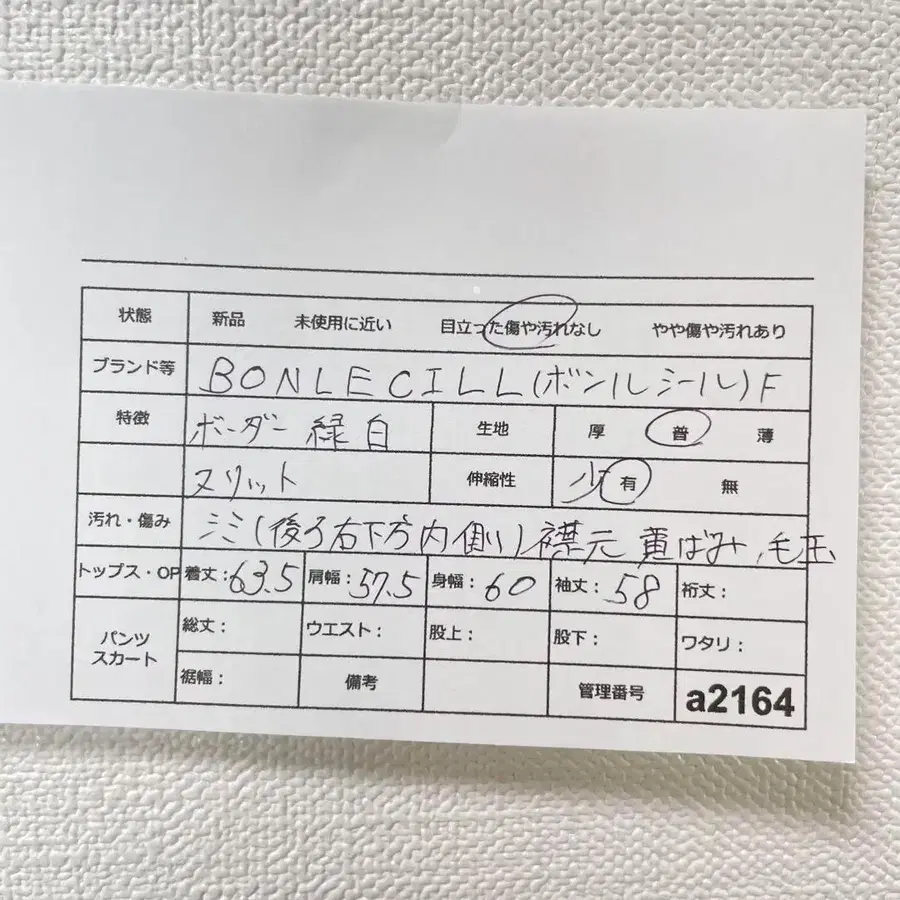 状態 新品 未使用に近い 目立った傷や汚れなし やや傷や汚れあり
ブランド等 BONLECILL(ボンルシール)F
特徴 ボーダー 緑 白 生地 厚 普 薄
スリット 伸縮性 少 有 無
汚れ・傷み シミ(後ろ右下方内側)襟元 黄ばみ,毛玉
トップス・OP 着丈:63.5 肩幅:57.5 身幅:60 袖丈:58 裄丈:
パンツ スカート 総丈: ウエスト: 股上: 股下: ワタリ:
裾幅: 備考 管理番号 a2164